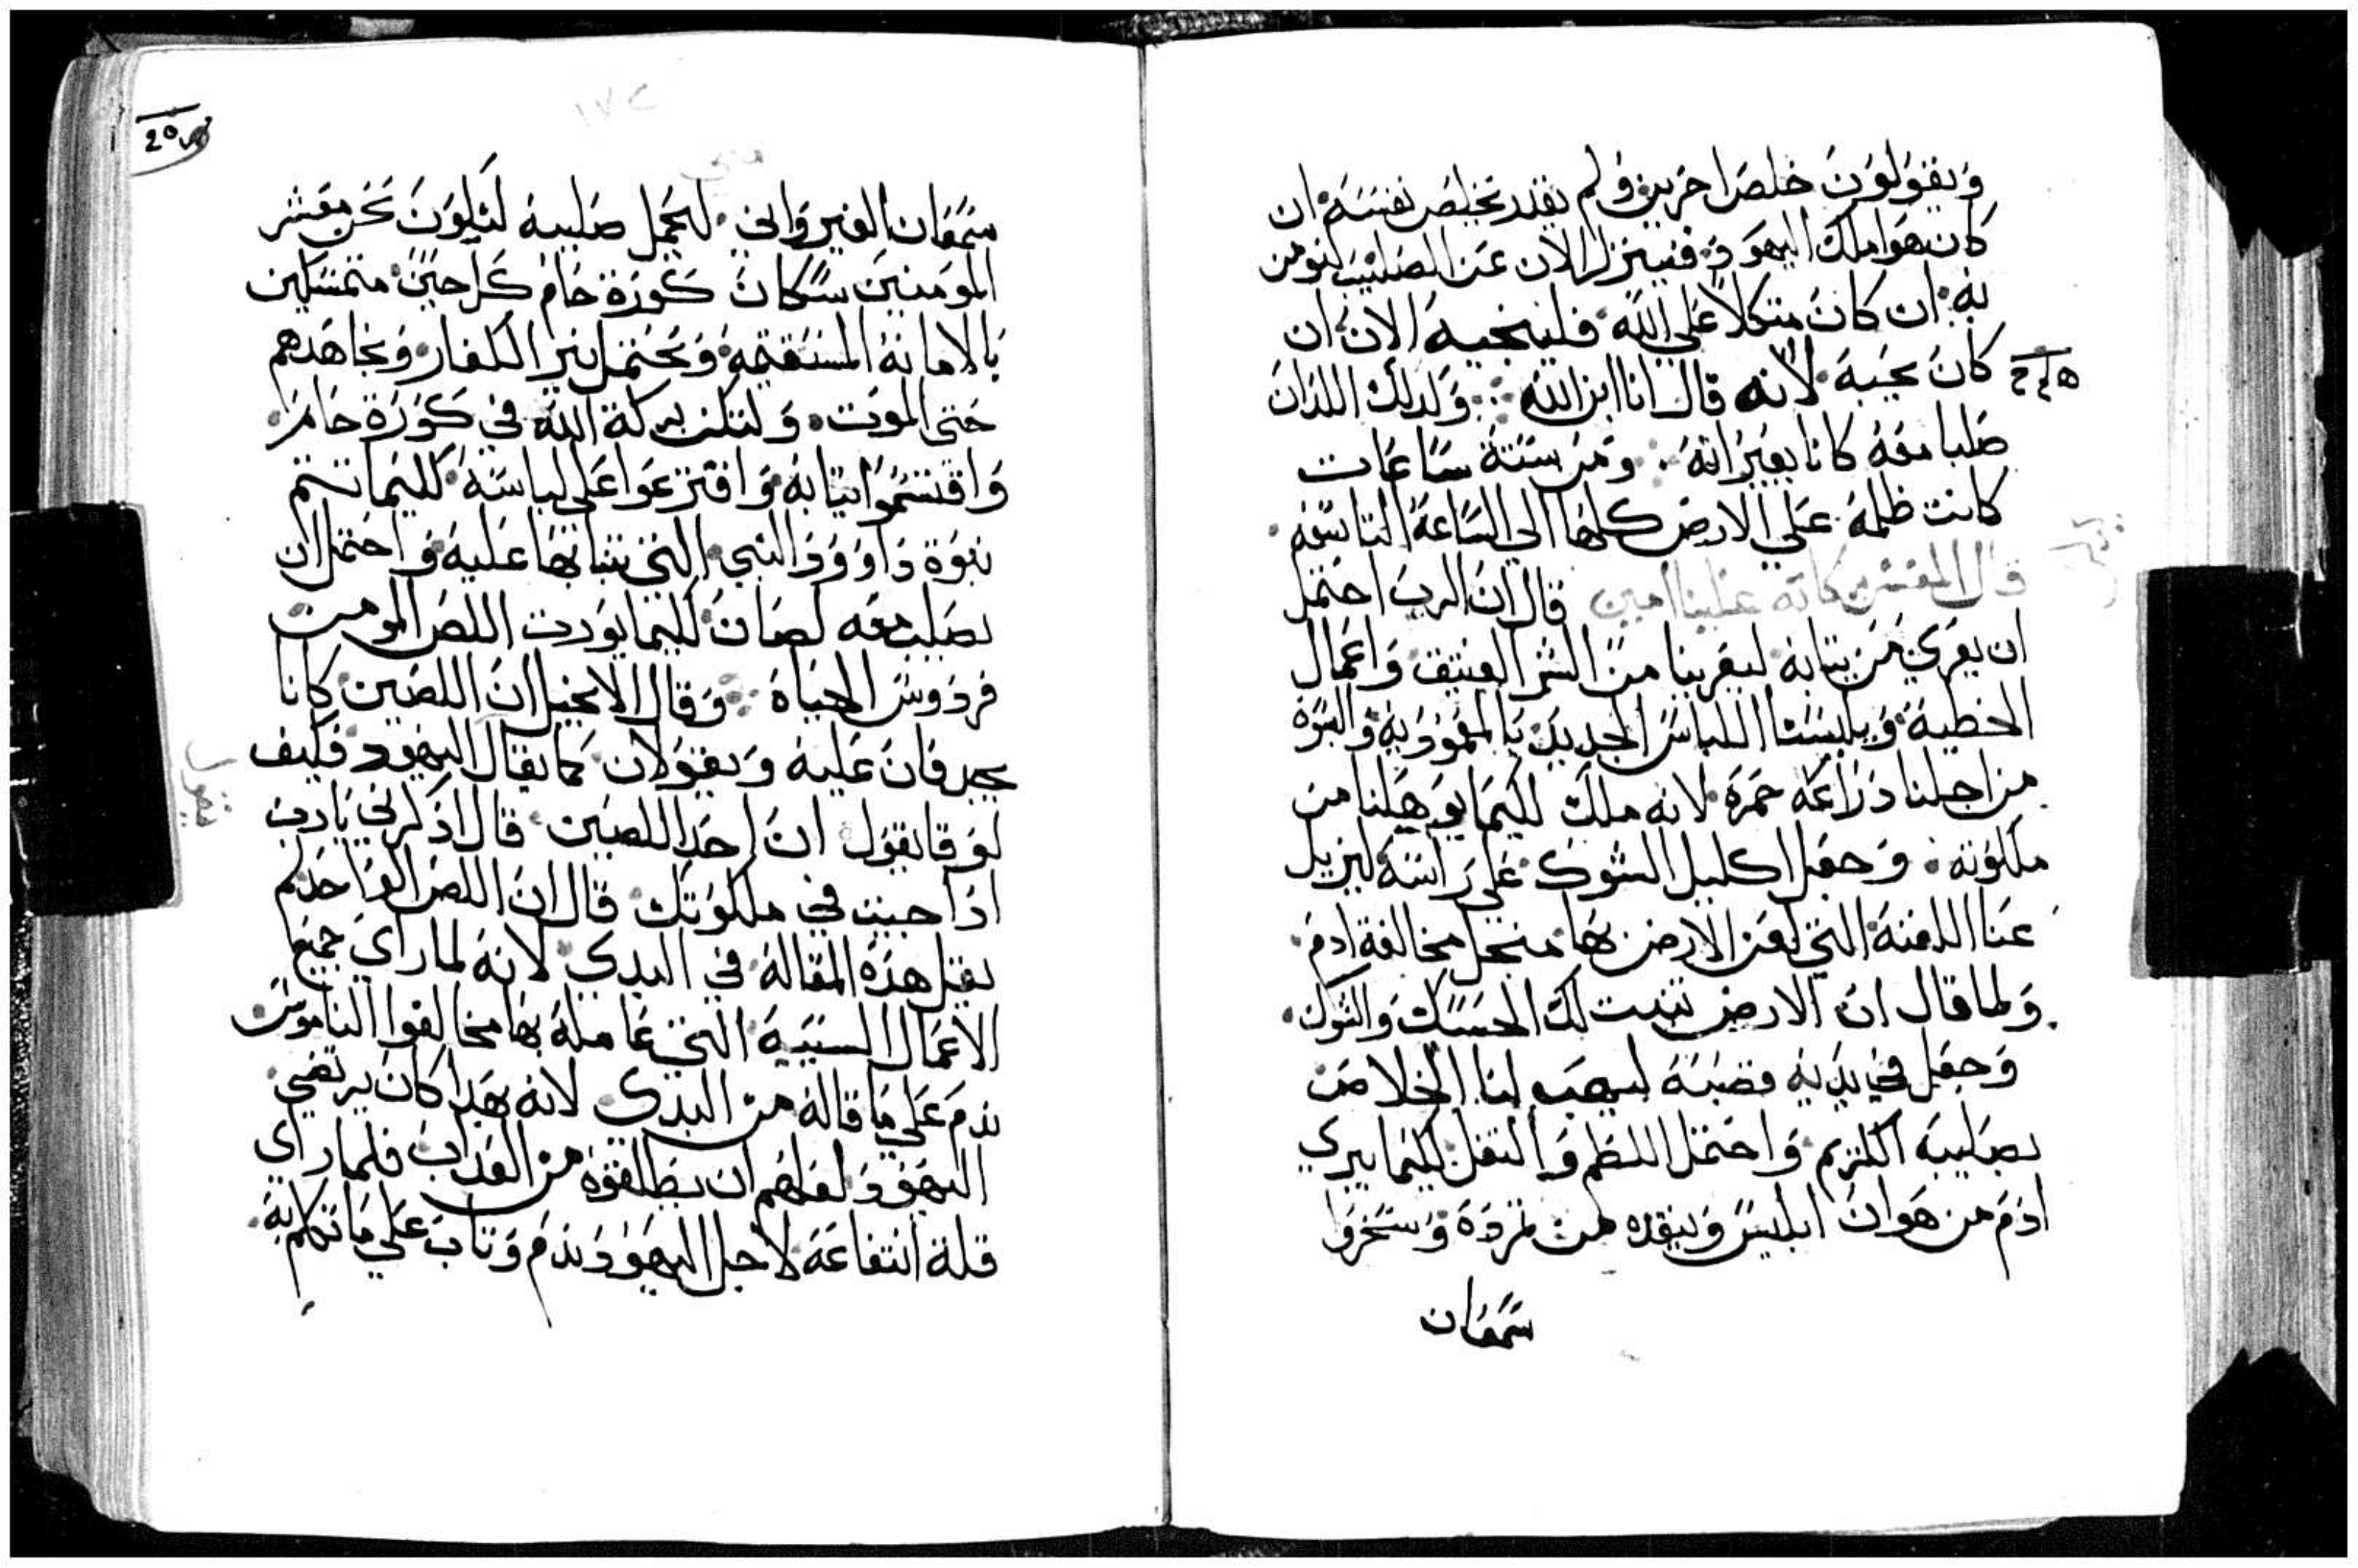 ويقولون خلص اخرين ولم يقدر يخلص نفسه ان
كان هوا ملك اليهود فينزل الان عن الصليب لنومن
به ان كان متكلا علي الله فلينجيه الان ان
كان يحبه لانه قال انا ابن الله وكدلك اللدان
صلبا معه كانا يعيرانه ومن ستة ساعات
كانت ظلمه علي الارض كلها الي الساعة التاسعه
قال المفسر بركاته علينا امين قال ان الرب احتمل
ان يعري من تيابه ليعرينا من الشر العتيق واعمال
الخطية ويلبسنا اللباس الجديد بالمعموديه والبسوه
من اجلنا دراعه حمره لانه ملك لكيما يوهلنا من
ملكوته وجعل اكليل الشوك علي راسه ليزيل
عنا اللعنة التي لعن الارض بها منجل مخالفة ادم
ولما قال ان الارض تنبت لك الحسك والشوك
وجعل في يديه قصبة ليهب لنا الخلاص
بصليبه الكريم واحتمل اللطم والتفل لكيما يبري
ادم من هوان ابليس وينقده من تمرده وسخروا
سمعان
١٧٢
متي
سمعان القيرواني ليحمل صليبه لنكون نحن معشر
المومنين سكان كورة حام كل حين متمسكين
بالامانة المستقيمة ونحتمل نير الكفار ونجاهدهم
حتي الموت ولتكن بركة الله في كورة حام
واقتسموا تيابه واقترعوا علي لباسه لكيما تتم
نبوة داوود النبي التي تنبا بها عليه واحتمل ان
يصلب معه لصان لكيما يورت اللص المومن
فردوس الحياة وقال الانجيل ان اللصين كانا
يجدفان عليه ويقولان كما يقال اليهود فكيف
لوقا يقول ان احد اللصين قال ادكرني يارب
ادا جيت في ملكوتك قال ان اللص الواحد لم
يقبل هده المقالة في البدي لانه لما راي جميع
الاعمال السيية التي عاملة بها مخالفوا الناموس
ندم علي ما قاله من البدي لانه بهدا كان يرتضي
اليهود لعلهم ان يطلقوه من العداب فلما راي
قلة انتفاعه لاجل اليهود ندم وتاب علي ما تكلم به